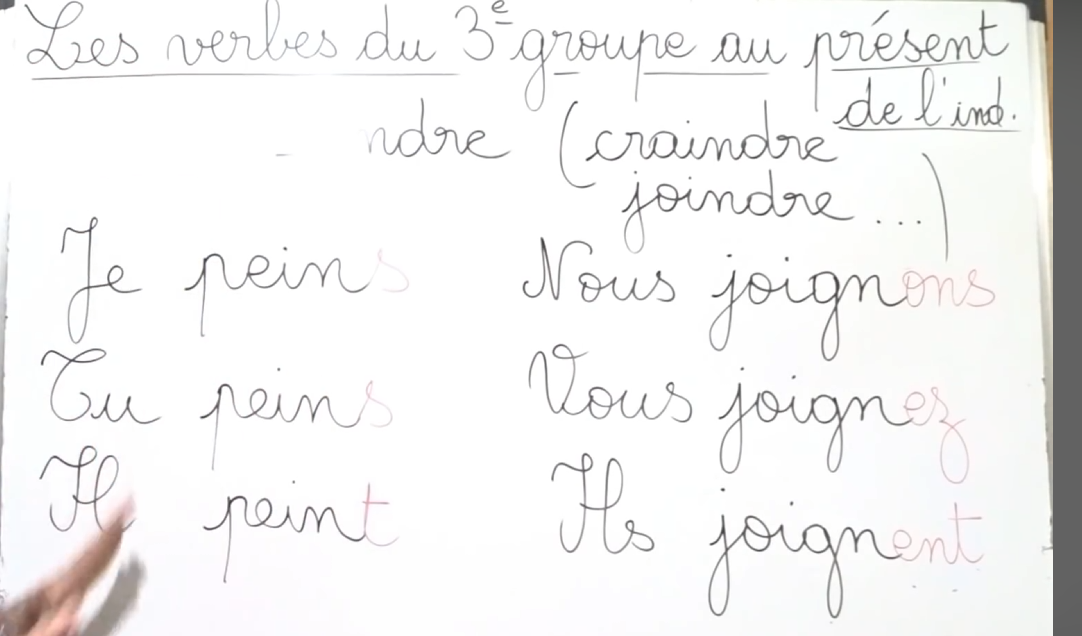 Les verbes du 3e groupe au présent
de l'ind.
- ndre (craindre
joindre ...)
Je peins Nous joignons
Tu peins Vous joignez
Il peint Ils joignent